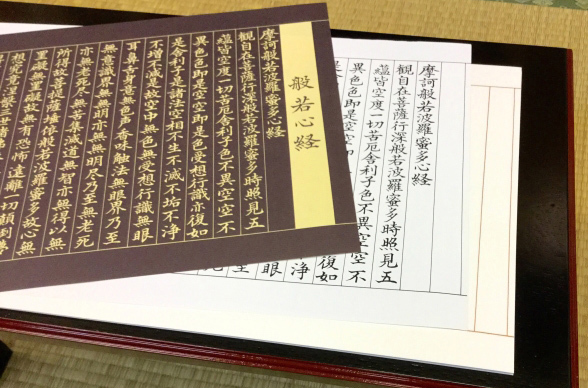 般若心経
摩訶般若波羅蜜多心経
觀自在菩薩行深般若波羅蜜多時照見五
蘊皆空度一切苦厄舎利子色不異空空不
異色色即是空空即是色受想行識亦復如
是舎利子是諸法空相不生不滅不垢不浄
不増不減是故空中無色無受想行識無眼
耳鼻舌身意無色声香味触法無眼界乃至
無意識界無無明亦無無明尽乃至無老死
亦無老死尽無苦集滅道無智亦無得以無
所得故菩提薩埵依般若波羅蜜多故心無
罣礙無罣礙故無有恐怖遠離一切顛倒夢
想究竟涅槃三世諸佛
摩訶般若波羅蜜多心経
觀自在菩薩行深般若波羅蜜多時照見五
蘊皆空度一切苦厄舎利子色不異空空不
異色色即是空空
復如
是
浄
眼
至